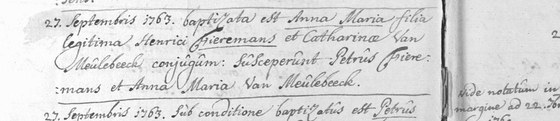 27. Septembris 1763. baptizata est Anna Maria filia
legitima Henrici Gieremans et Catharinæ Van
Meulebeeck conjugum: Susceperunt Petrus Giere=
:mans et Anna Maria Van Meulebeck.
27. Septembris 1763. Sub conditione baptizatus est Petrus
Vide notatum in
margine ad 22.